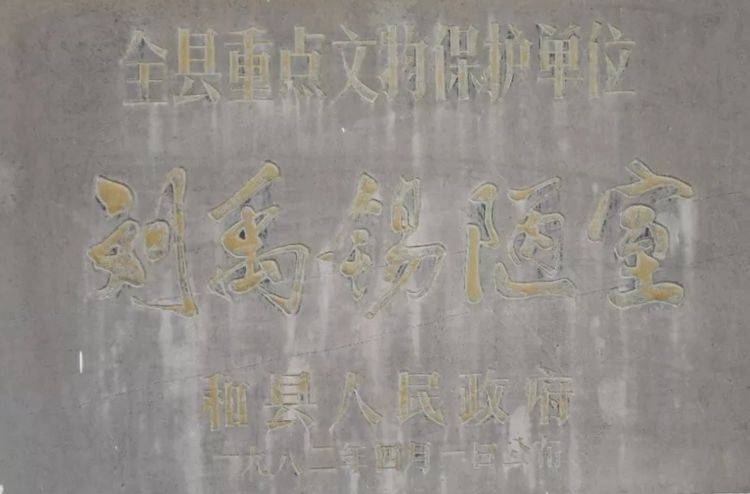 全县重点文物保护单位
刘禹锡陋室
和县人民政府
一九八二年四月一日公布